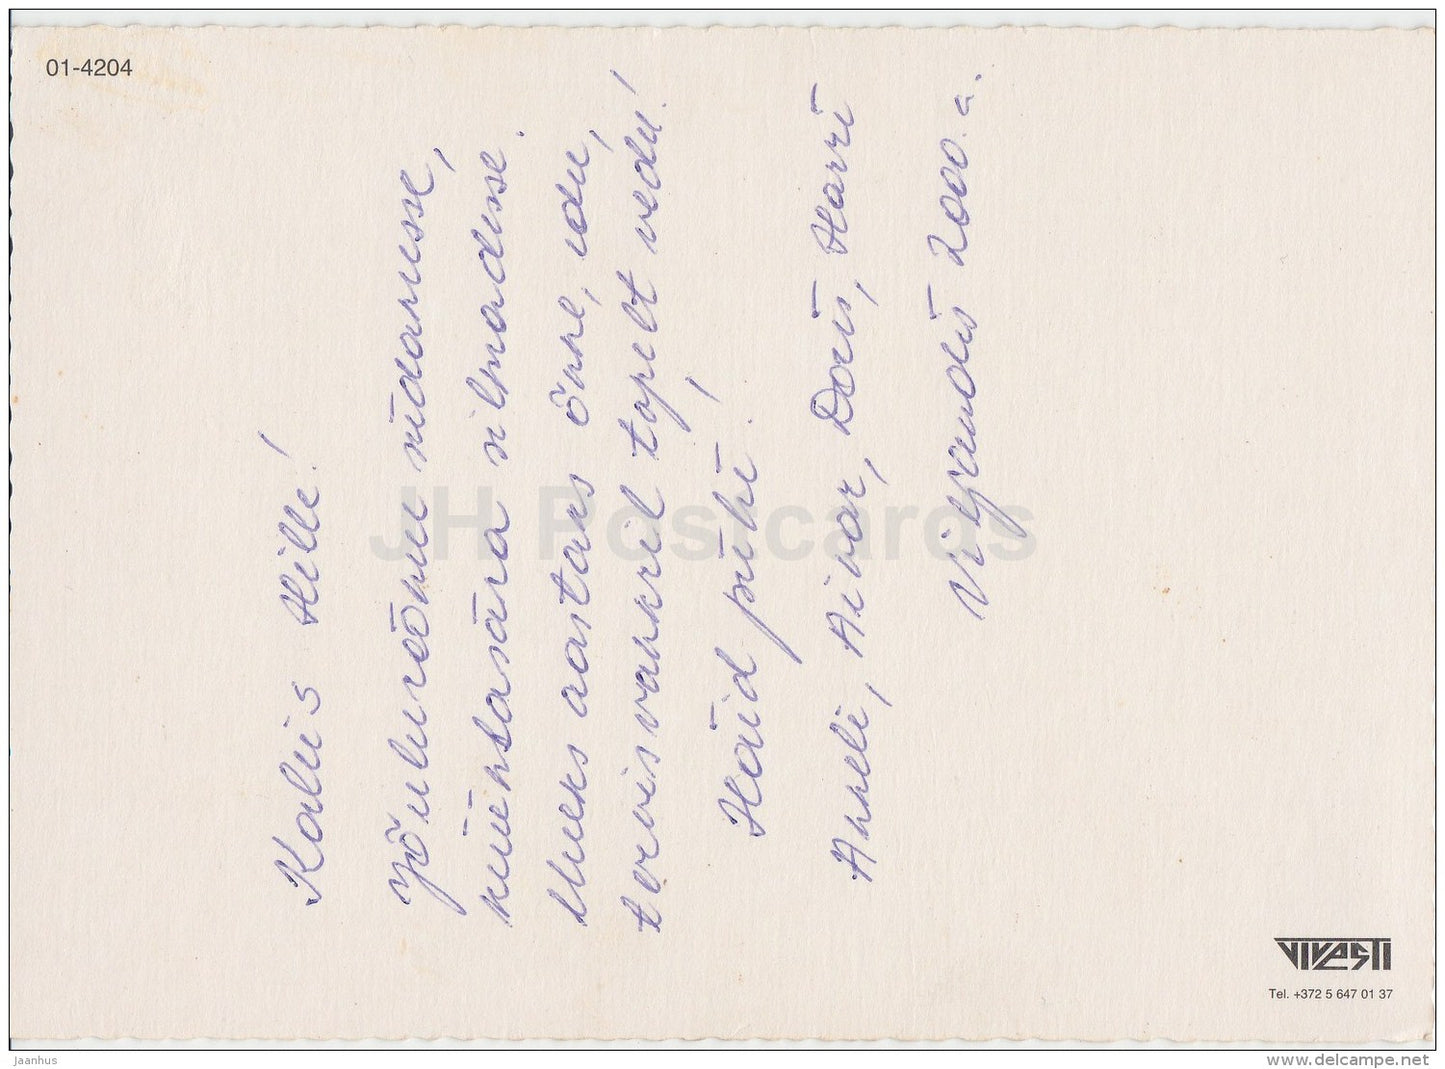 01-4204
Kallis Hille!
Jõulurõõmu südamesse,
küünlasära silmadesse.
Uueks aastaks õnne, edu,
tervisvankril topelt vedu!
Häid pühi!
Anneli, Aivar, Doris, Harri
Viljandis 2000. a.
JH Postcards
VIVASTI
Tel. +372 5 647 01 37
jaanhus
www.delcampe.net